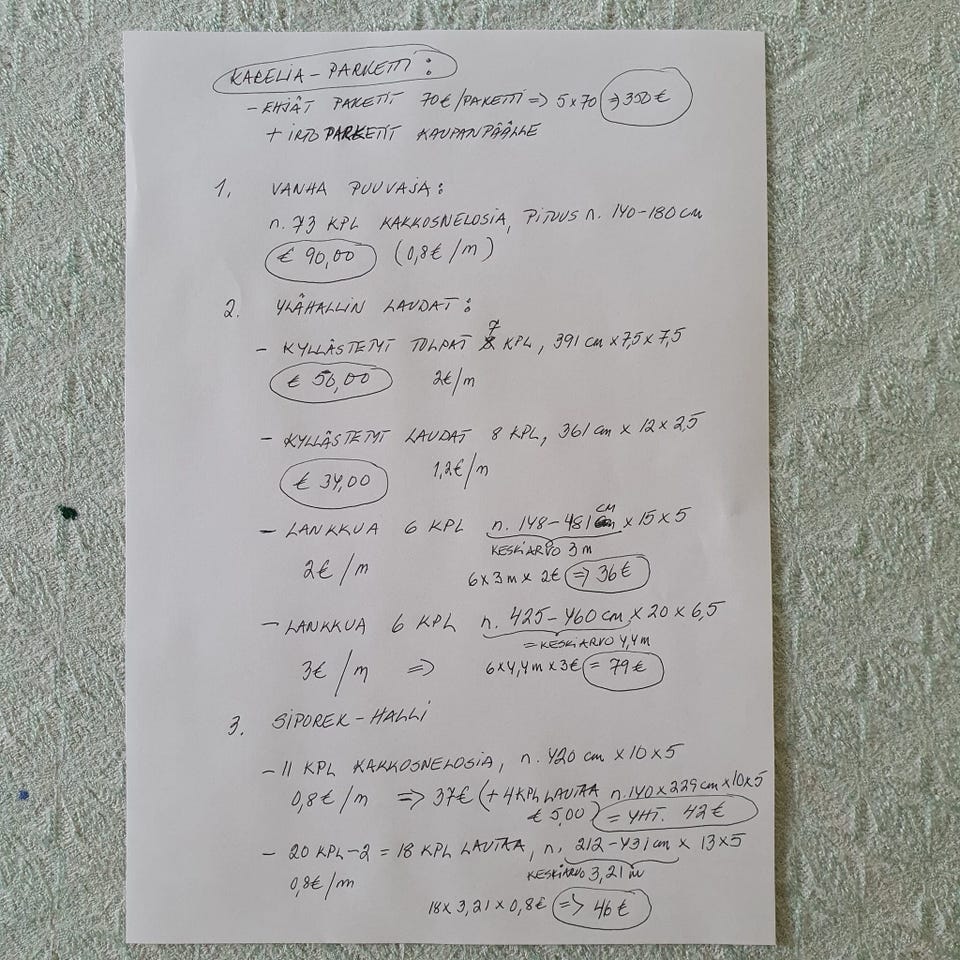 KARELIA-PARKETTI:
- EHJÄT PAKETIT 70€/PAKETTI => 5x70 => 350€
+ IRTO PARKETIT KAUPANPÄÄLLE
1. VANHA PUUVAJA:
n. 73 KPL KAKKOSNELOSIA, PITUUS n. 140-180 cm
€ 90,00 (0,8€/m)
2. YLÄHALLIN LAUDAT:
- KYLLÄSTETYT TOLPAT 7 KPL, 391 cm x 7,5 x 7,5
€ 50,00 2€/m
- KYLLÄSTETYT LAUDAT 8 KPL, 361 cm x 12 x 2,5
€ 34,00 1,2€/m
- LANKKUA 6 KPL n. 148-481 CM x 15 x 5
KESKIARVO 3 m
2€/m 6 x 3 m x 2€ => 36€
- LANKKUA 6 KPL n. 425-460 cm x 20 x 6,5
= KESKIARVO 4,4m
3€/m => 6x4,4m x 3€ = 79€
3. SIPOREK-HALLI
- 11 KPL KAKKOSNELOSIA, n. 420 cm x 10 x 5
0,8€/m => 37€ (+ 4 KPL LAUTAA n. 140 x 229 cm x 10x5
€ 5,00) = YHT. 42€
- 20 KPL-2 = 18 KPL LAUTAA, n. 212-431 cm x 13x5
KESKIARVO 3,21 m
0,8€/m
18x 3,21 x 0,8€ => 46€